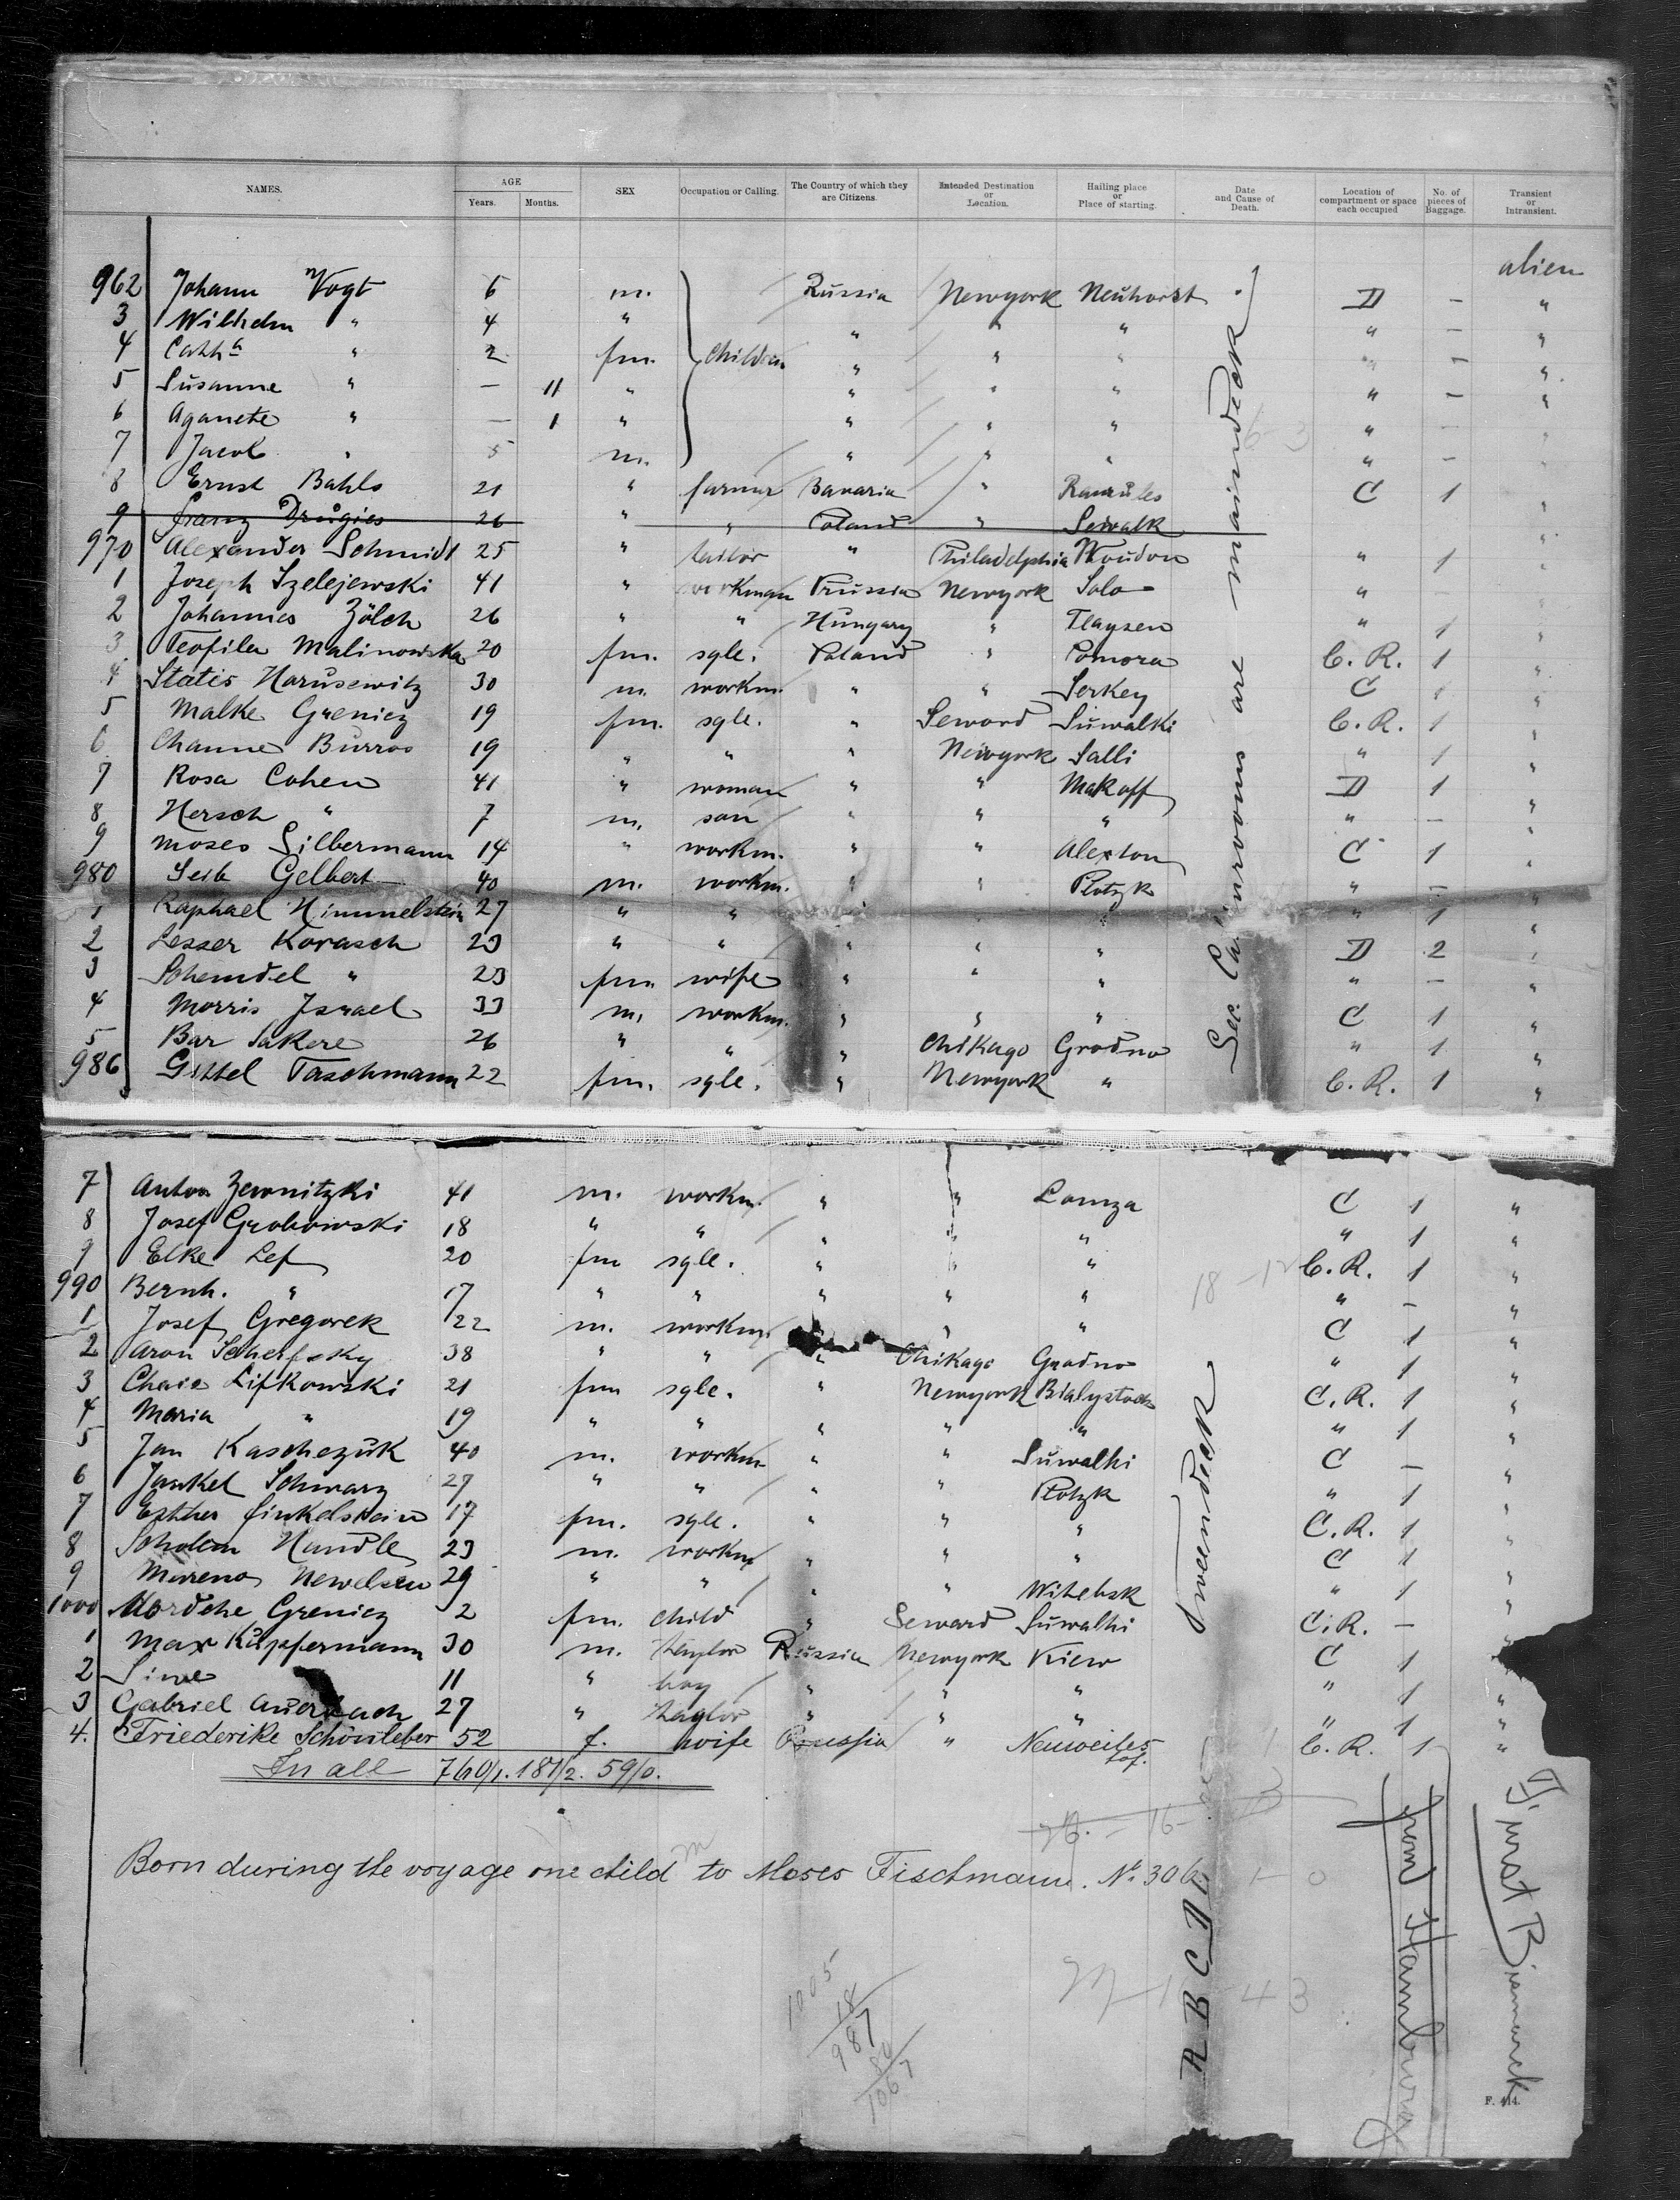 NAMES. AGE Years. Months. SEX Occupation or Calling. The Country of which they are Citizens. Intended Destination or Location. Hailing place or Place of starting. Date and Cause of Death. Location of compartment or space each occupied No. of pieces of Baggage. Transient or Intransient.
alien
962 Johann Vogt 6 m. Russia Newyork Neuhorst D - "
3 Wilhelm " 4 " " " " " - "
4 Cathh a " 2 fm. Children " " " " - "
5 Susanne " - 11 " " " " " - "
6 Aganete " - 1 " " " " " - "
7 Jacob " 5 m. " " " " - "
8 Ernst Bahls 21 " farmer Bavaria " C 1 "
9 franz Drugies 26 " " Poland " Sewalk
970 Alexander Schmidt 25 " tailor " Philadelphia " 1 "
1 Joseph Szelejewski 41 " workman Prussia Newyork Solo " - "
2 Johannes Zölch 26 " " Hungary " Tlaysen " 1 "
3 Teofila Malinowska 20 fm. sgle. Poland " Pomora C. R. 1 "
4 Statis Harusewitz 30 m. workm. " " Serkey C 1 "
5 Malke Greniez 19 fm. sgle. " Seward Suwalki C. R. 1 "
6 Channe Burros 19 " " " Newyork Salli " 1 "
7 Rosa Cohen 41 " woman " " Makoff D 1 "
8 Hersch " 7 m. son " " " " - "
9 Moses Silbermann 14 " workm. " " Alexton C 1 "
980 Leib Gelbert 40 m. workm. " " Plotzk " - "
1 Raphael Himmelstein 27 " " " " " " 1 "
2 Lesser Korasch 23 " " " " " D 2 "
3 Schendel " 23 fm. wife " " " " - "
4 Morris Israel 33 m. workm. " " " C 1 "
5 Bar Sakere 26 " " " Chikago Grodno " 1 "
986 Gittel Taschmann 22 fm. sgle. " Newyork " C. R. 1 "
Sec. Cabinrooms are maindeck.
7 Anton Zewnitzki 41 m. workm. " " Lomza C 1 "
8 Josef Grabowski 18 " " " " " " 1 "
9 Elke Lef 20 fm sgle. " " " C. R. 1 "
990 Bernh. " 17 " " " " " " - "
1 Josef Gregorek 22 m. workm. " " " C 1 "
2 Aron Scherfsky 38 " " " Chikago Grodno " 1 "
3 Chaie Lifkowski 21 fm sgle. " Newyork Bialystock C. R. 1 "
4 Maria " 19 " " " " " " 1 "
5 Jan Kascheczuk 40 m. workm " " Suwalki C - "
6 Jankel Schwarz 27 " " " " Plotzk " 1 "
7 Esther finkelstein 17 fm. sgle. " " " C. R. 1 "
8 Scholem Handle 23 m. workm " " " C 1 "
9 29 " " " " Witebsk " 1 "
1000 Mordche Greniez 2 fm. child " Seward Suwalki C. R. - "
1 Max Küpfermann 30 m. taylor Russia Newyork Kiew C 1 "
2 Sine 11 " boy " " " " 1 "
3 Gabriel Auerbach 27 " taylor " " " " 1 "
4. Friederike Schönleber 52 f. wife Prussia " Neuweiler C. R. 1 "
In all 760/1. 181/2. 59/0.
Born during the voyage one child m to Moses Fischmann. No 306
18 - 12
Tweendeck
A B C D
1005
18
987
80
1067
from Hamburg
Fürst Bismarck
F. 414.